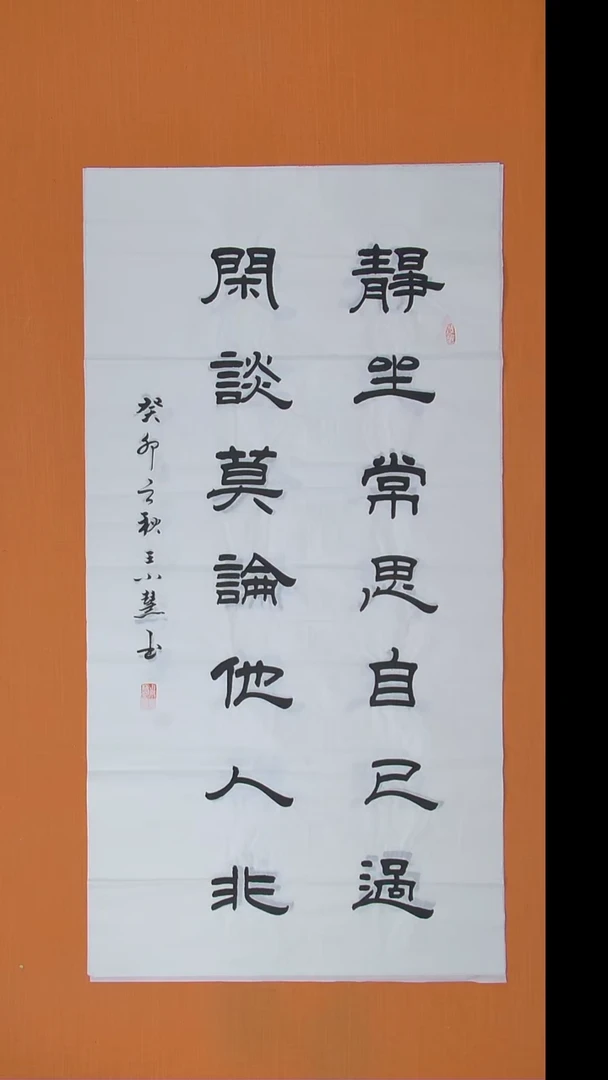 靜坐常思自己過
閑談莫論他人非
癸卯之秋王小慧书